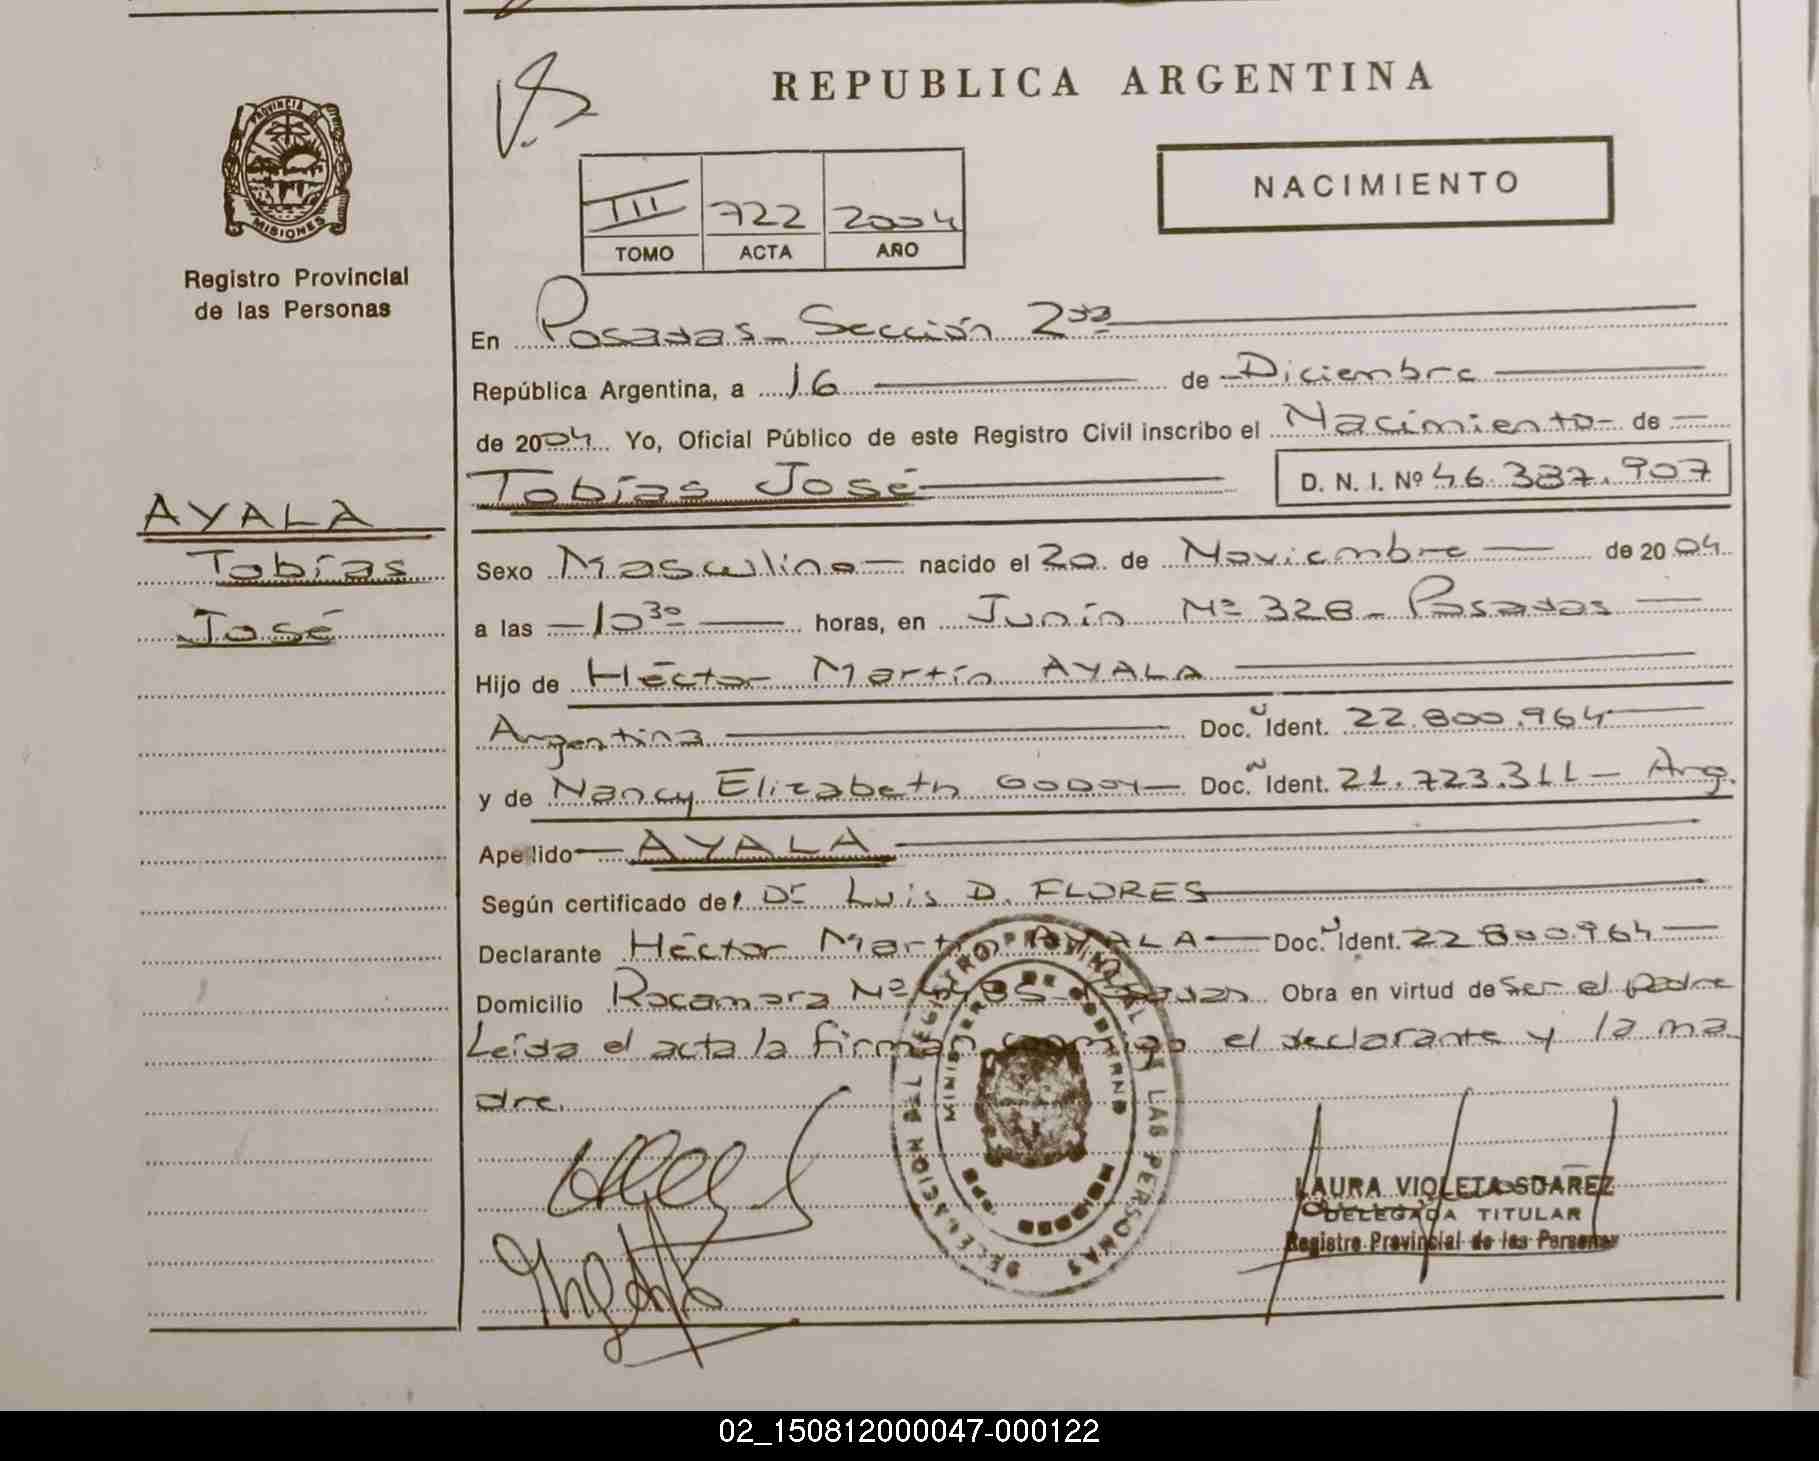 REPUBLICA ARGENTINA
NACIMIENTO
III 722 2004
TOMO ACTA AÑO
PROVINCIA DE
MISIONES
Registro Provincial
de las Personas
AYALA
Tobías
José
En Posadas - Sección 2da
República Argentina, a 16 de Diciembre
de 2004 Yo, Oficial Público de este Registro Civil inscribo el Nacimiento de
Tobías José D. N. I. Nº 46.387.907
Sexo Masculino nacido el 20 de Noviembre de 2004
a las 10 30 horas, en Junín Nº 328 - Posadas
Hijo de Héctor Martín AYALA
Argentina Doc. Ident. 22.800.964
y de Nancy Elizabeth GODOY Doc. Ident. 21.723.311 - Arg.
Apellido AYALA
Según certificado de Dr Luis D. FLORES
Declarante Héctor Martín AYALA Doc. Ident. 22800964
Domicilio Rocamora Nº Posadas Obra en virtud de ser el padre
Leída el acta la firman conmigo el declarante y la ma
dre.
REGISTRO PROVINCIAL DE LAS PERSONAS
MINISTERIO DE GOBIERNO
LAURA VIOLETA SUAREZ
DELEGADA TITULAR
Registro Provincial de las Personas
02_150812000047-000122